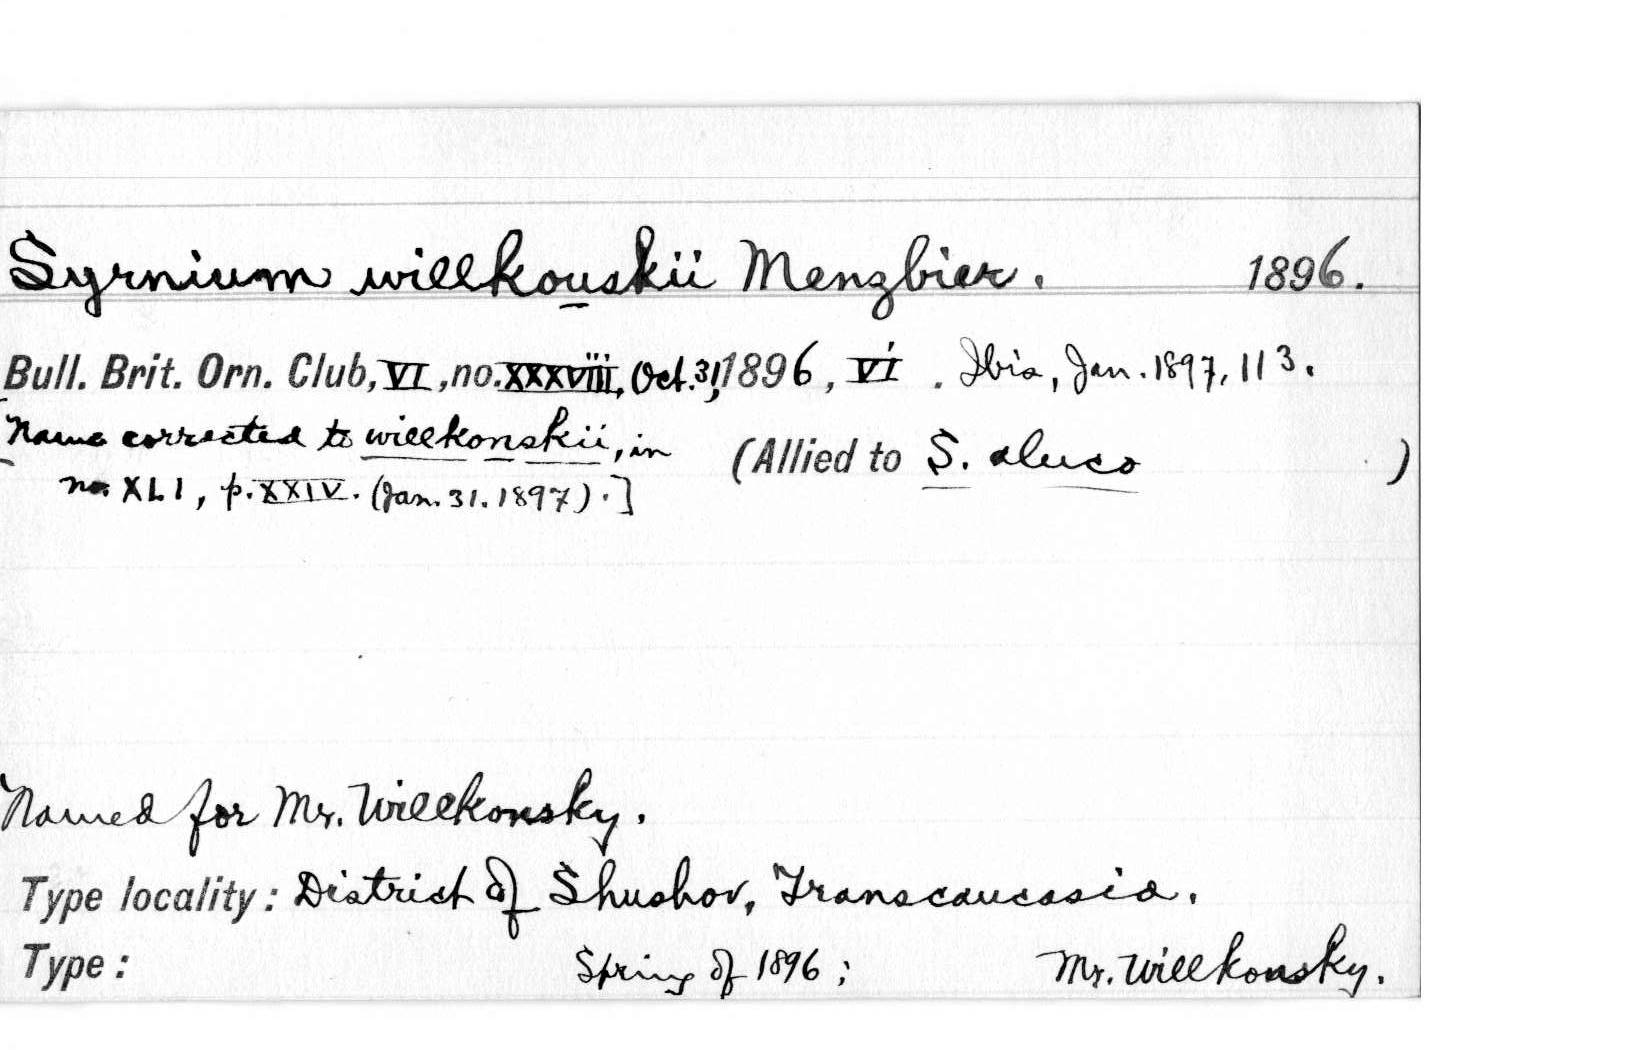 Syrnium willkouskii Menzbier. 1896.
Bull. Brit. Orn. Club, VI, no. xxxviii, Oct. 31, 1896, vi. Ibis, Jan. 1897, 113.
[Name corrected to willkonskii, in (Allied to S. aluco )
no. XLI, p. XXIV. (Jan. 31. 1897).]
Named for Mr. Willkonsky.
Type locality: District of Shushov, Transcaucasia.
Type: Spring of 1896; Mr. Willkonsky.